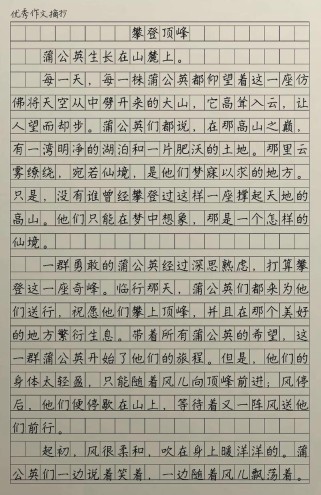 优秀作文摘抄
攀登顶峰
蒲公英生长在山麓上。
每一天，每一株蒲公英都仰望着这一座仿
佛将天空从中劈开来的大山，它高耸入云，让
人望而却步。蒲公英们都说，在那高山之巅，
有一湾明净的湖泊和一片肥沃的土地。那里云
雾缭绕，宛若仙境，是他们梦寐以求的地方。
只是，没有谁曾经攀登过这样一座撑起天地的
高山。他们只能在梦中想象，那是一个怎样的
仙境。
一群勇敢的蒲公英经过深思熟虑，打算攀
登这一座奇峰。临行那天，蒲公英们都来为他
们送行，祝愿他们攀上顶峰，并且在那个美好
的地方繁衍生息。带着所有蒲公英的希望，这
一群蒲公英开始了他们的旅程。但是，他们的
身体太轻盈，只能随着风儿向顶峰前进；风停
后，他们便停歇在山上，等待着又一阵风送他
们前行。
起初，风很柔和，吹在身上暖洋洋的。蒲
公英们一边说着笑着，一边随着风儿飘荡着。